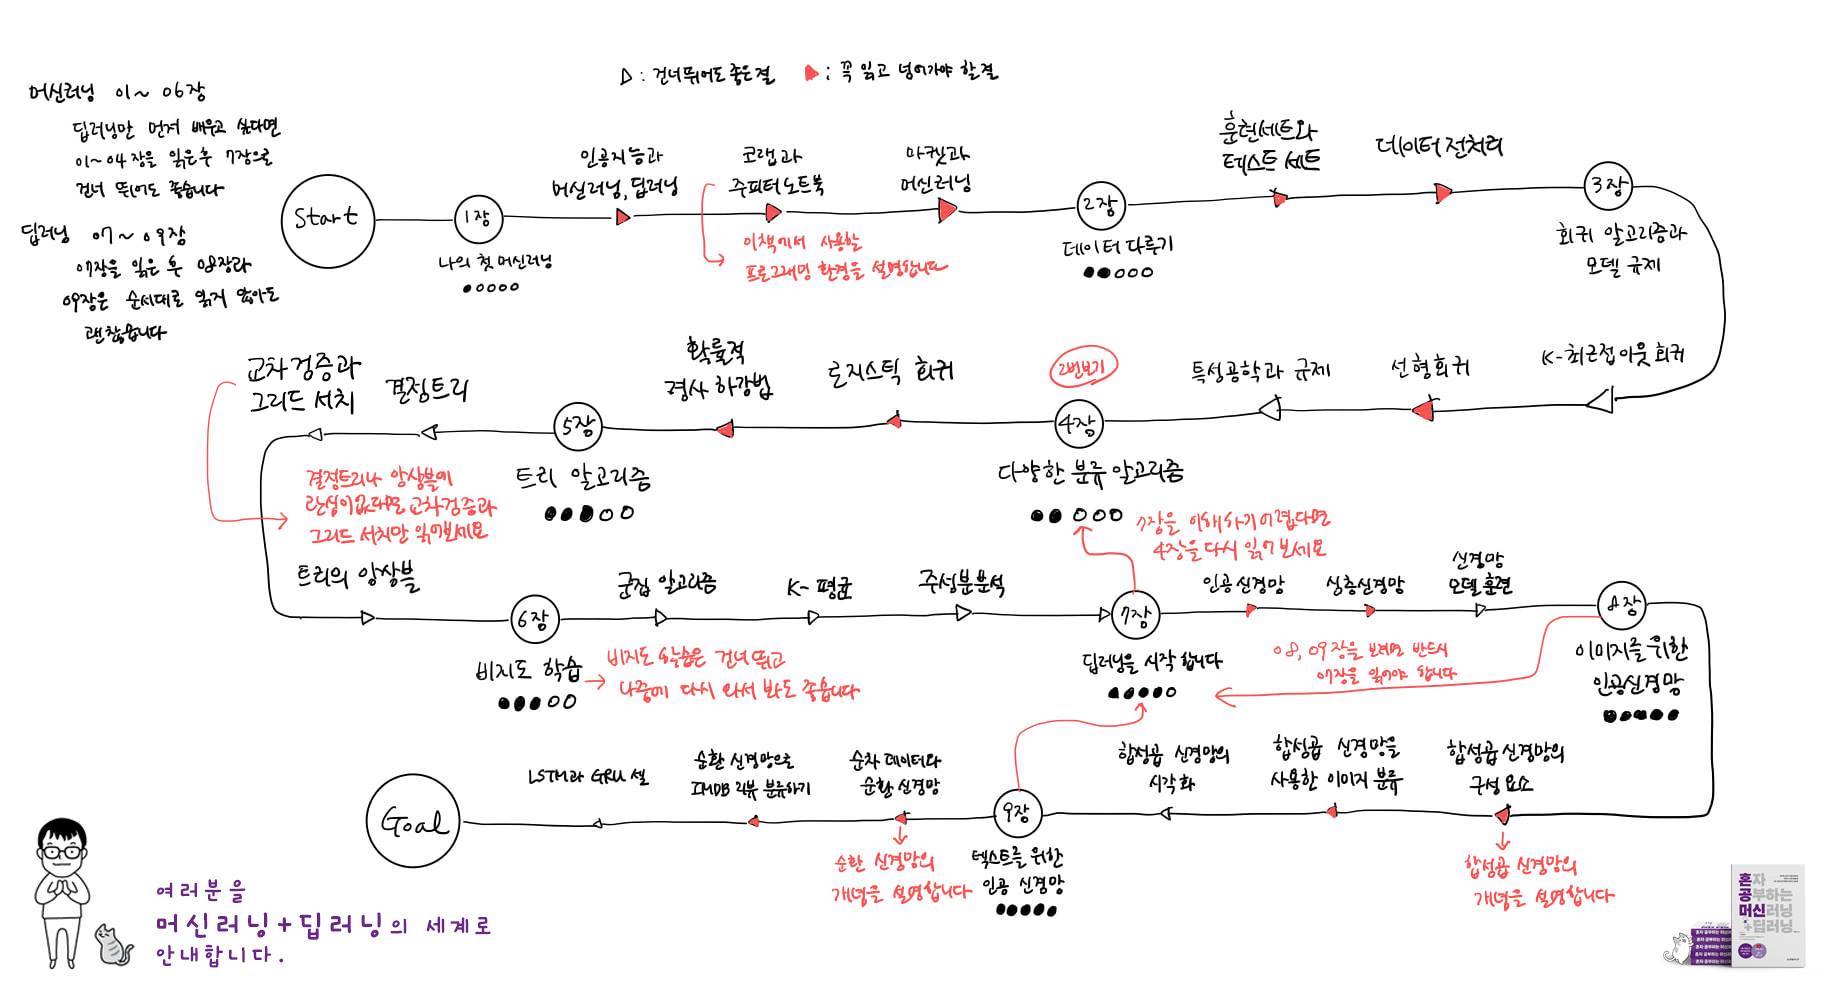 ▷ : 건너뛰어도 좋은 절 ▶ : 꼭 읽고 넘어가야 할 절
머신러닝 01~06장
딥러닝만 먼저 배우고 싶다면
01~04장을 읽은 후 7장으로
건너 뛰어도 좋습니다
딥러닝 07~09장
07장을 읽은 후 08장과
09장은 순서대로 읽지 않아도
괜찮습니다
Start
1장
나의 첫 머신러닝
인공지능과
머신러닝, 딥러닝
코랩과
주피터 노트북
이 책에서 사용할
프로그래밍 환경을 설명합니다
마켓과
머신러닝
2장
데이터 다루기
훈련 세트와
테스트 세트
데이터 전처리
3장
회귀 알고리즘과
모델 규제
K-최근접 이웃 회귀
선형 회귀
특성공학과 규제
2번보기
4장
다양한 분류 알고리즘
로지스틱 회귀
확률적
경사 하강법
5장
트리 알고리즘
결정트리
교차 검증과
그리드 서치
결정트리나 앙상블에
관심이 없다면 교차검증과
그리드 서치만 읽어보세요
트리의 앙상블
6장
비지도 학습
비지도 학습은 건너 뛰고
나중에 다시 와서 봐도 좋습니다
군집 알고리즘
K-평균
주성분 분석
7장
딥러닝을 시작합니다
7장을 이해하기 어렵다면
4장을 다시 읽어보세요
인공 신경망
심층신경망
신경망
모델 훈련
8장
이미지를 위한
인공신경망
08, 09장을 보려면 반드시
07장을 읽어야 합니다
합성곱 신경망의
구성 요소
합성곱 신경망의
개념을 설명합니다
합성곱 신경망을
사용한 이미지 분류
합성곱 신경망의
시각화
9장
텍스트를 위한
인공 신경망
순차 데이터와
순환 신경망
순환 신경망의
개념을 설명합니다
순환 신경망으로
IMDB 리뷰 분류하기
LSTM과 GRU 셀
Goal
여러분을
머신러닝+딥러닝의 세계로
안내합니다.
혼자
공부하는
머신러닝
+딥러닝